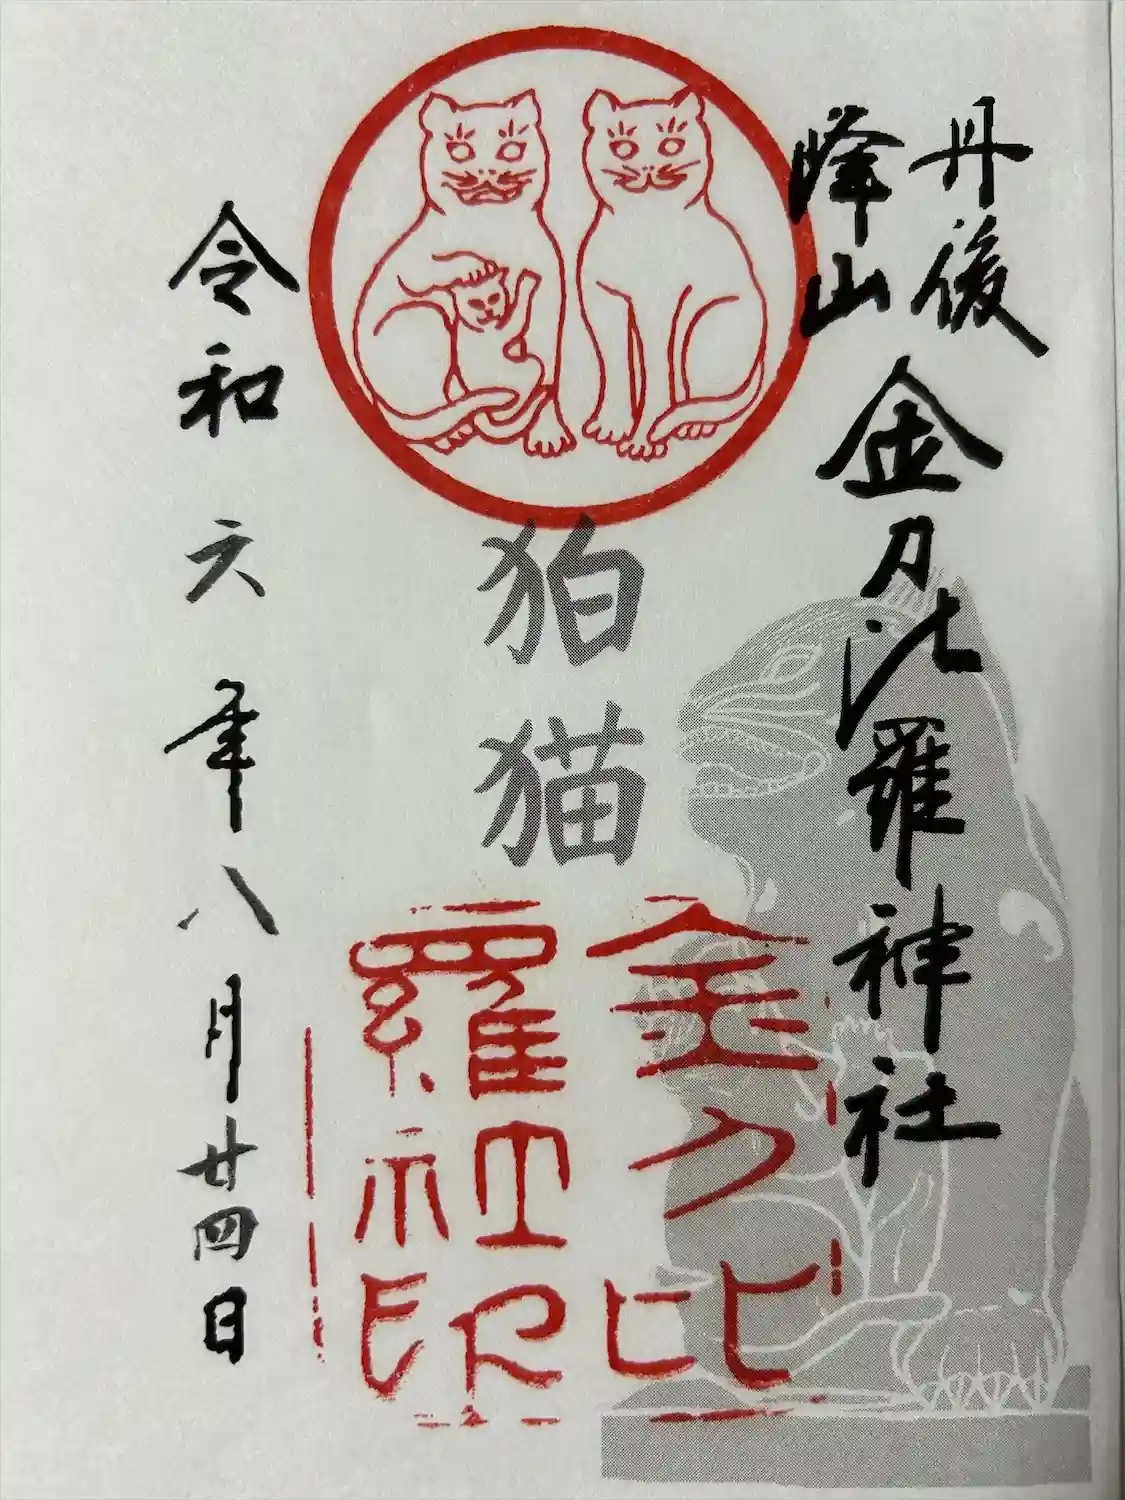 丹後
峰山
金刀比羅神社
狛猫
金刀比
羅社
印
令和六年八月廿四日